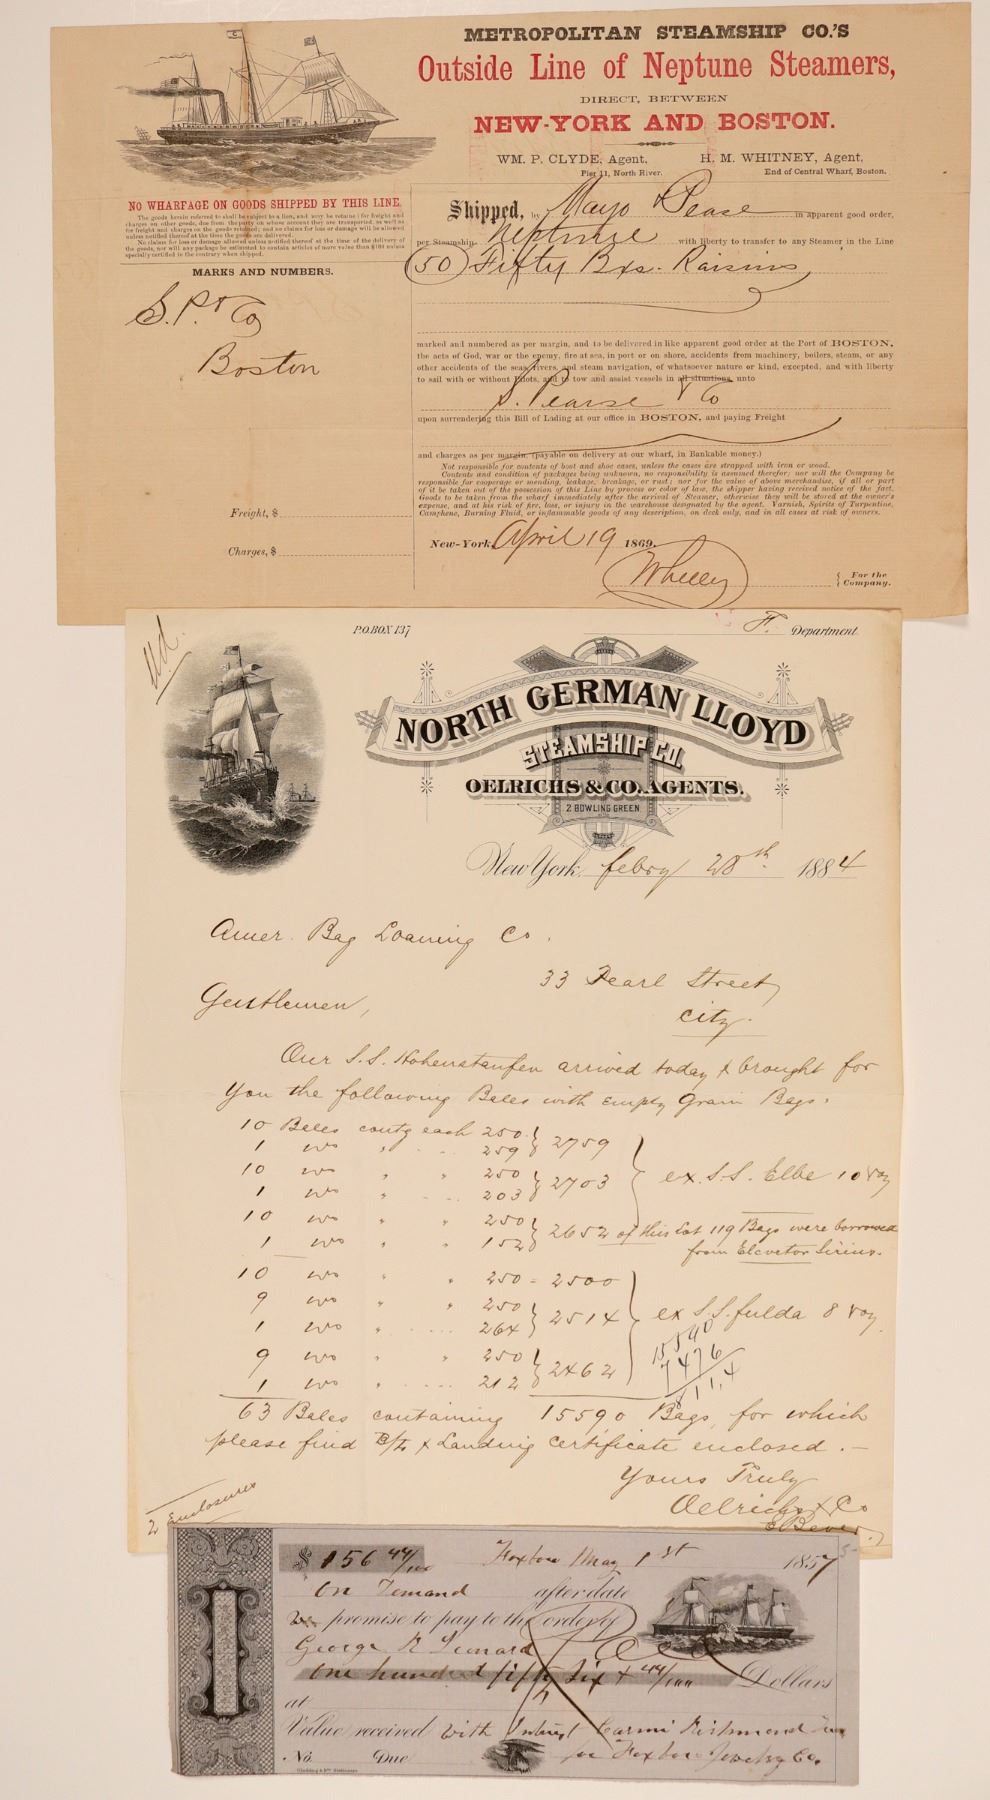 METROPOLITAN STEAMSHIP CO.'S
Outside Line of Neptune Steamers,
DIRECT, BETWEEN
NEW-YORK AND BOSTON.
WM. P. CLYDE, Agent,
Pier 11, North River.
H. M. WHITNEY, Agent,
End of Central Wharf, Boston.
NO WHARFAGE ON GOODS SHIPPED BY THIS LINE.
The goods herein referred to shall be subject to a lien, and may be retained for freight and
charges on other goods, due from the party on whose account they are transported, as well as
for freight and charges on the goods retained; and no claims for loss or damage will be allowed
unless notified thereof at the time the goods are delivered.
No claims for loss or damage allowed unless notified thereof at the time of the delivery of
the goods, nor will any package be estimated to contain articles of more value than $100 unless
specially certified in the contrary when shipped.
MARKS AND NUMBERS.
S. P. & Co
Boston
Freight, $
Charges, $
Shipped, by Mayo & Pease in apparent good order,
per Steamship Neptune with liberty to transfer to any Steamer in the Line
(50) Fifty Bxs. Raisins,
marked and numbered as per margin, and to be delivered in like apparent good order at the Port of BOSTON,
the acts of God, war or the enemy, fire at sea, in port or on shore, accidents from machinery, boilers, steam, or any
other accidents of the seas, rivers, and steam navigation, of whatsoever nature or kind, excepted, and with liberty
to sail with or without Pilots, and to tow and assist vessels in all situations, unto
S. Pearse & Co
upon surrendering this Bill of Lading at our office in BOSTON, and paying Freight
and charges as per margin, (payable on delivery at our wharf, in Bankable money.)
Not responsible for contents of boot and shoe cases, unless the cases are strapped with iron or wood.
Contents and condition of packages being unknown, no responsibility is assumed therefor; nor will the Company be
responsible for cooperage or mending, leakage, breakage, or rust; nor for the value of above merchandise, if all or part
of it be taken out of the possession of this Line by process or color of law, the shipper having received notice of the fact.
Goods to be taken from the wharf immediately after the arrival of Steamer, otherwise they will be stored at the owner's
expense, and at his risk of fire, loss, or injury in the warehouse designated by the agent. Varnish, Spirits of Turpentine,
Camphene, Burning Fluid, or inflammable goods of any description, on deck only, and in all cases at risk of owners.
New-York, April 19 1869.
For the
Company.
P.O. BOX 137
F. Department.
NORTH GERMAN LLOYD
STEAMSHIP CO.
OELRICHS & CO. AGENTS.
2 BOWLING GREEN
New York, febry 28th 1884
Amer. Bag Loaning Co.
33 Pearl Street
City.
Gentlemen,
Our S.S. Hohenstaufen arrived today & brought for
You the following Bales with empty Grain Bags.
10 Bales contg each 250
1 do " 259 } 2759
10 do " " 250
1 do " 203 } 2703 ex. S.S. Elbe 10 voy
10 do " " 250
1 do " " 152 } 2652 of this Lot 119 Bags were borrowed
from Elevator Sirius.
10 do " " 250 = 2500
9 do " " 250
1 do " 264 } 2514 ex S.S. fulda 8 voy.
9 do " " 250
1 do " 212 } 2462
15590
7476
63 Bales containing 15590 Bags, for which
please find B/L & Landing certificate enclosed. —
Yours Truly
Oelrichs & Co
2 Enclosures
$ 156 44/100 Foxboro May 1st 1857
On Demand after date
we promise to pay to the order of
George R Leonard
One hundred fifty six & 44/100 Dollars
at
Value received with Interest Carmi Richmond
No. Due for Foxboro Jewelry Co.